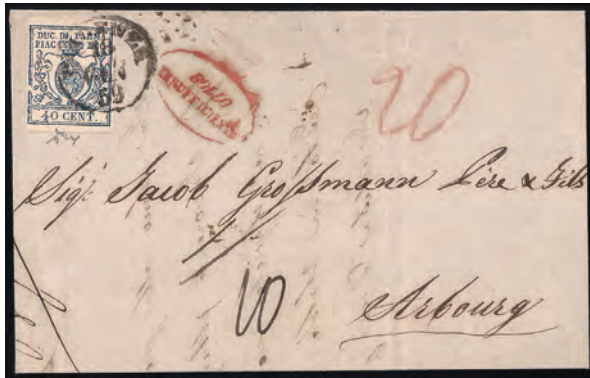 DUC. DI PARM
PIAC
40 CENT.
18
59
BOLLO
INSUFFICIENTE
20
Sigr Jacob Großmann Père & Fils
10
Arbourg